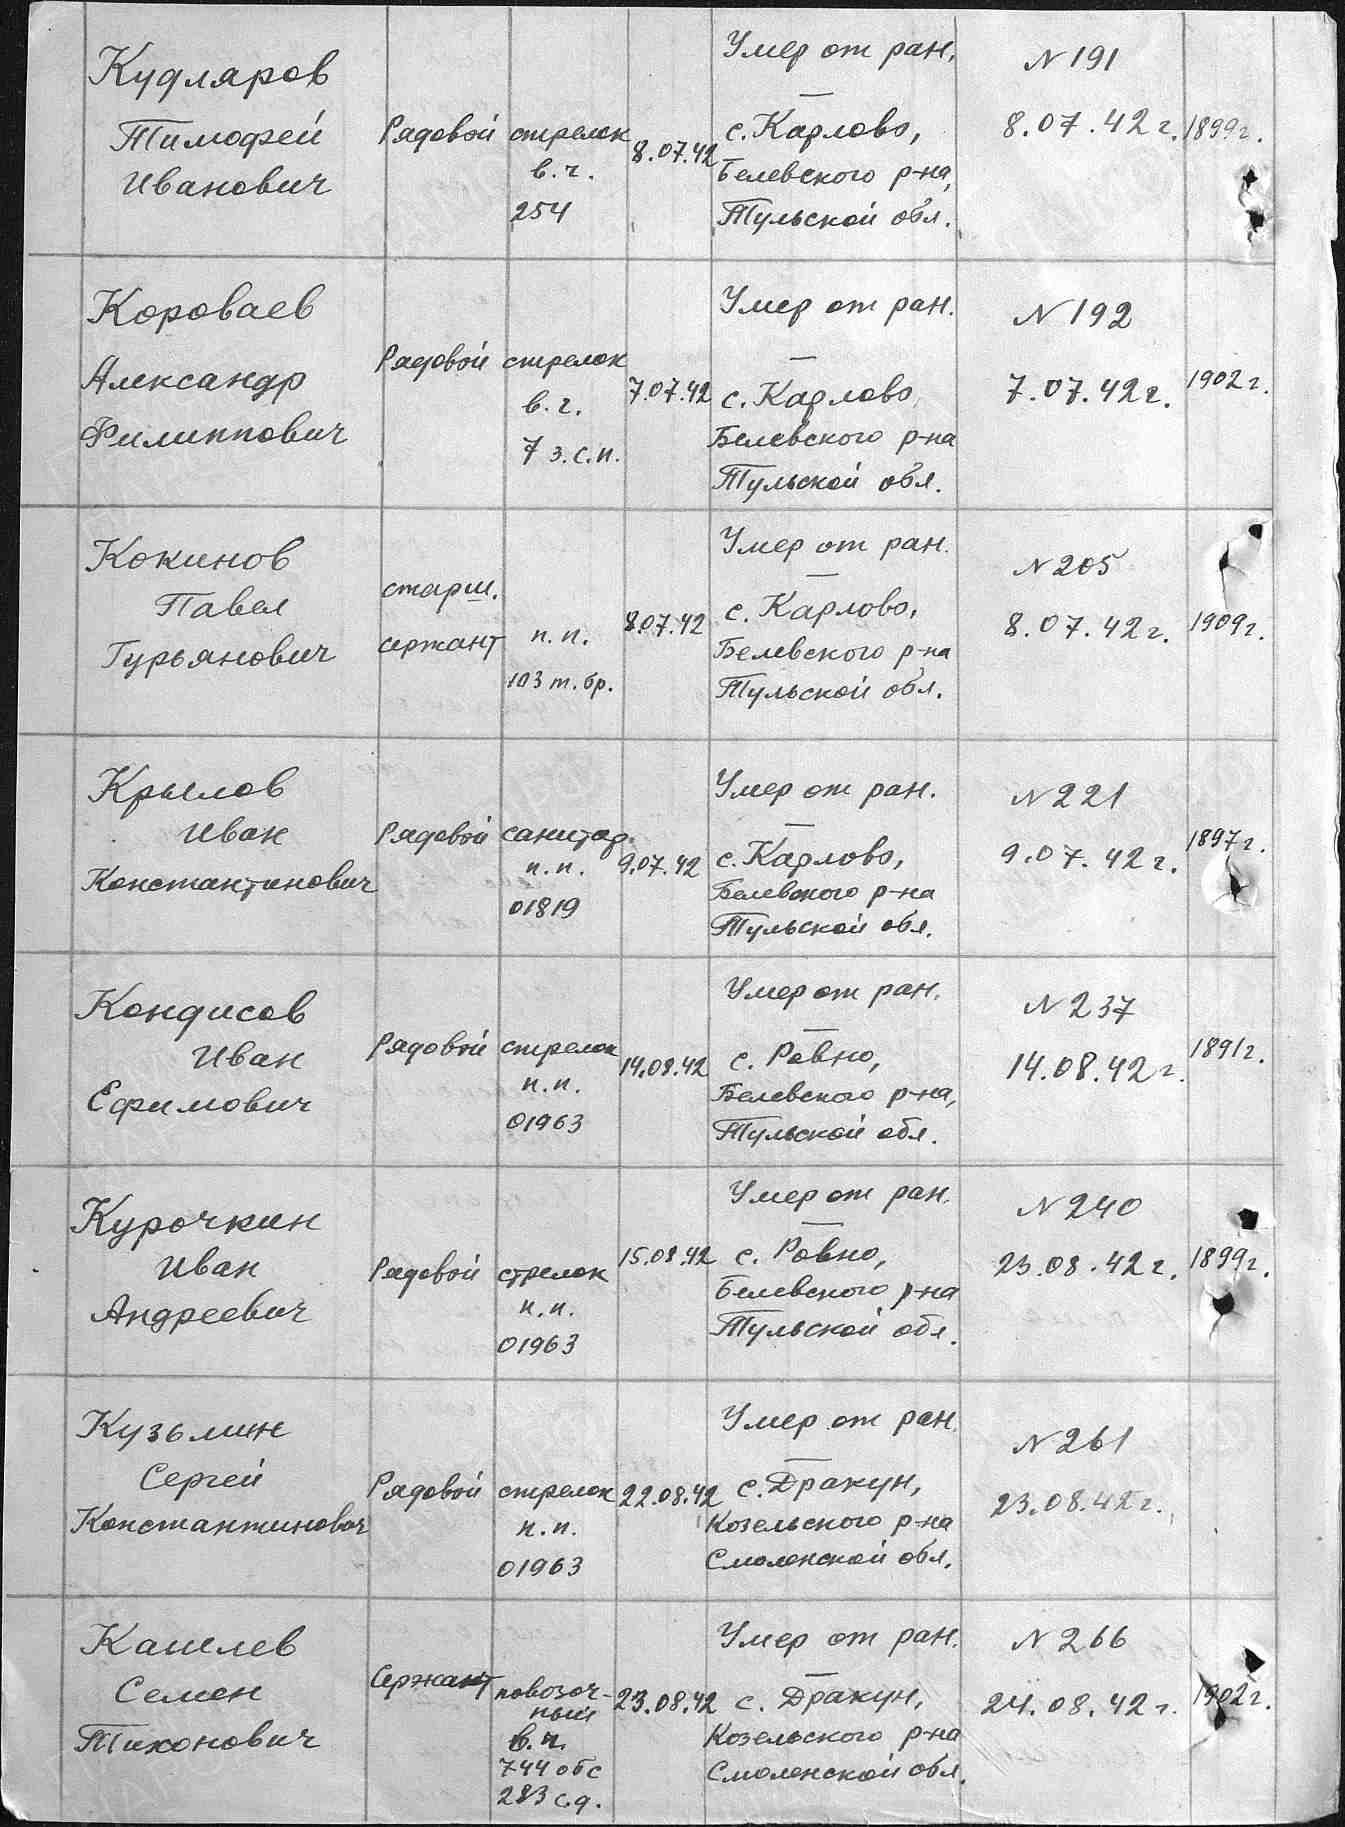 Кудляров
Тимофей
Иванович
Рядовой
стрелок
в.ч.
254
8.07.42
Умер от ран.
с. Карлово,
Белевского р-на,
Тульской обл.
N 191
8.07.42 г.
1899г.
Короваев
Александр
Филиппович
Рядовой
стрелок
в.ч.
7 з.с.п.
7.07.42
Умер от ран.
с. Карлово,
Белевского р-на
Тульской обл.
N 192
7.07.42 г.
1902 г.
Кокинов
Павел
Гурьянович
старш.
сержант
п.п.
103 т.бр.
8.07.42
Умер от ран.
с. Карлово,
Белевского р-на
Тульской обл.
N 205
8.07.42 г.
1909 г.
Крылов
Иван
Константинович
Рядовой
санитар.
п.п.
01819
9.07.42
Умер от ран.
с. Карлово,
Белевского р-на
Тульской обл.
N 221
9.07.42 г.
1897 г.
Кондисов
Иван
Ефимович
Рядовой
стрелок
п.п.
01963
14.08.42
Умер от ран.
с. Ровно,
Белевского р-на,
Тульской обл.
N 237
14.08.42 г.
1891 г.
Курочкин
Иван
Андреевич
Рядовой
стрелок
п.п.
01963
15.08.42
Умер от ран.
с. Ровно,
Белевского р-на
Тульской обл.
N 240
23.08.42 г.
1899 г.
Кузьмин
Сергей
Константинович
Рядовой
стрелок
п.п.
01963
22.08.42
Умер от ран.
с. Дракун,
Козельского р-на
Смоленской обл.
N 261
23.08.42 г.
Кашлев
Семен
Тихонович
Сержант
повозоч-
ный
в.ч.
744 обс
283 с.д.
23.08.42
Умер от ран.
с. Дракун,
Козельского р-на
Смоленской обл.
N 266
24.08.42 г.
1902 г.